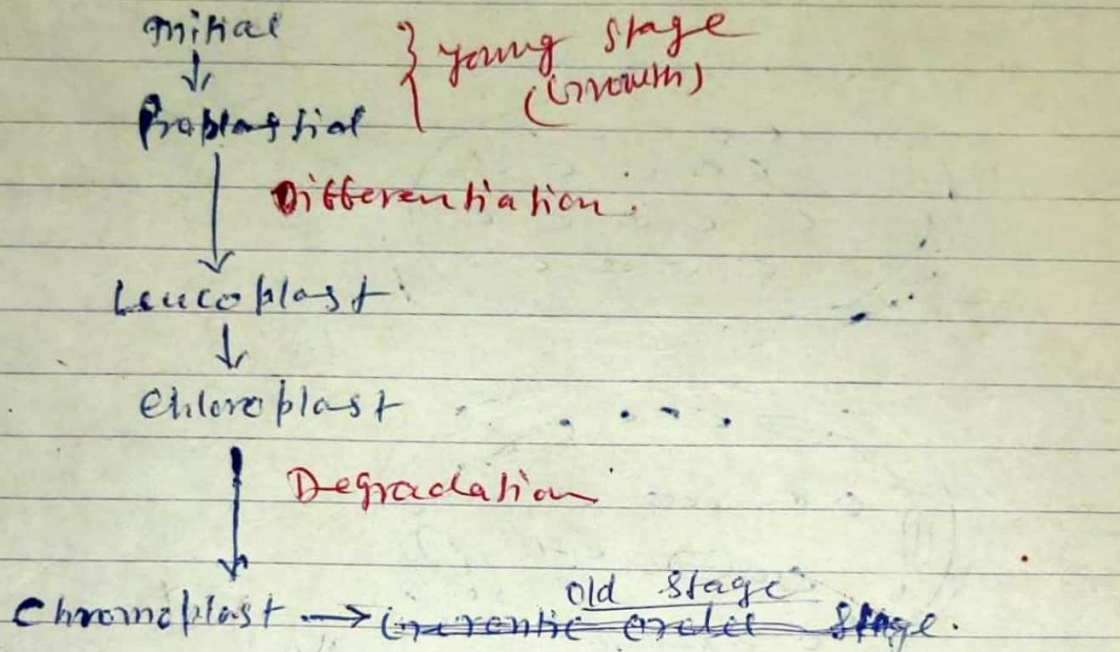 Initial
↓
Proplastial
} Young Stage
(Growth)
↓ Differentiation.
Leucoplast
↓
Chloroplast
↓ Degradation
Old Stage
Chromoplast → Stage.